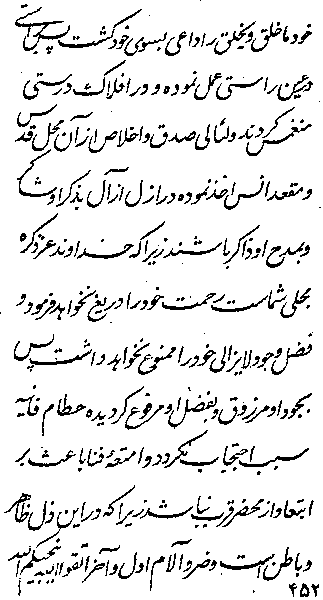 خود ما خلق و یخلق را داعی بسوی خود گشت پس بجای
در عین راستی عمل نموده و در افلاک درستی
منغمس گردند و لئالی صدق و اخلاص از آن محل قدس
و مقعد انس اخذ نموده در ازل ازال بذکر او شاکر
و بمدح او ذاکر باشند زیرا که خداوند عز ذکره
مجلی شماست رحمت خود را دریغ نخواهد فرمود و
فضل و جود لایزالی خود را ممنوع نخواهد داشت پس
بجود او مرزوق و بفضل او مرفوع گردیده حطام فانیه
سبب احتجاب نگردد و امتعهٔ فنا باعث بر
ابتعاد از محضر قرب نباشد زیرا که در این ذل ظاهر
و باطن است و ضر و آلام اول و آخر اتقوا الله ینجیکم الله
۴۵۲